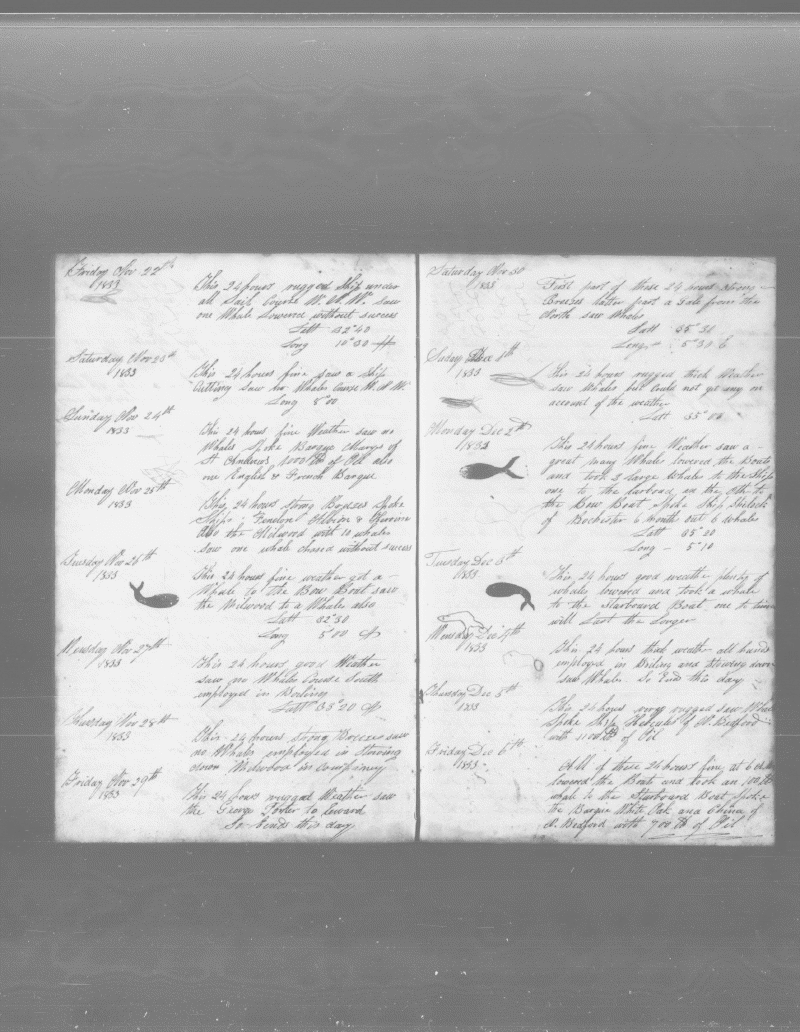 Friday Nov 22th
1833
This 24 hours rugged Ship under
all Sail Course W. N. W. saw
one Whale Lowered without success
Latt 32°40
Long 10°30
Saturday Nov 23th
1833
This 24 hours fine saw a Ship
Cutting saw no Whales Course W. N. W.
Long 8°00
Sunday Nov 24th
1833
This 24 hours fine Weather saw no
Whales Spoke Barque Marys of
St Andrews of Oil also
one English & French Barque
Monday Nov 25th
1833
This 24 hours strong Breezes Spoke
Ships Fenelon &
also the with 10 whales
saw one whale chased without success
Tuesday Nov 26th
1833
This 24 hours fine weather got a
Whale to the Bow Boat saw
the Milwood to a Whale also
Latt 32°30
Long 5°00
Wensday Nov 27th
1833
This 24 hours good Weather
saw no Whales Course South
employed in Boiling
Latt 35°20
Thursday Nov 28th
1833
This 24 hours strong Breezes saw
no Whales employed in Stowing
down in Company
Friday Nov 29th
1833
This 24 hours rugged Weather saw
the George Porter to leward
So Ends this day
Saturday Nov 30
1833
First part of these 24 hours strong
Breezes latter part a Gale from the
North saw Whales
Latt 35°30
Long 5°30 E
Sunday Dec 1th
1833
This 24 hours rugged thick Weather
saw Whales but Could not get any on
account of the weather
Latt 35
Monday Dec 2th
1833
This 24 hours fine Weather saw a
great many Whales lowered the Boats
and took 2 large Whales to the Ship
one to the Larboard an the Oth to
the Bow Boat Spoke Ship Shylock
of Rochester 6 month out 6 whales
Latt 35°20
Long 5°10
Tuesday Dec 3th
1833
This 24 hours good weather plenty of
whales lowered and took a whale
to the Starboard Boat, one to
will Last the Longer
Wensday Dec 4th
1833
This 24 hours thick weather all hands
employed in Boiling and stowing down
saw Whales So Ends this day
Thursday Dec 5th
1833
This 24 hours very rugged saw Whales
Spoke Ship Hercules of N. Bedford
with 1100 bb of Oil
Friday Dec 6th
1833
All of these 24 hours fine at 6
lowered the Boats and took an 100 bb
whale to the Starboard Boat Spoke
the Barque White Oak and China of
N. Bedford with 700 bb of Oil